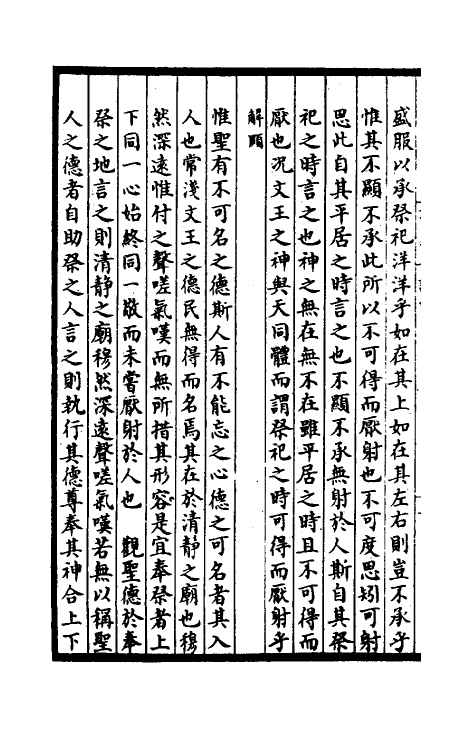 盛服以承祭祀洋洋乎如在其上如在其左右則豈不承乎
惟其不顯不承此所以不可得而厭射也不可度思矧可射
思此自其平居之時言之也不顯不承無射於人斯自其祭
祀之時言之也神之無在無不在雖平居之時且不可得而
厭也况文王之神與天同體而謂祭祀之時可得而厭射乎
解頥
惟聖有不可名之德斯人有不能忘之心德之可名者其入
人也常淺文王之德民無得而名焉其在於清靜之廟也穆
然深遠惟付之聲嗟氣嘆而無所措其形容是宜奉祭者上
下同一心始終同一敬而未嘗厭射於人也　觀聖德於奉
祭之地言之則清靜之廟穆然深遠聲嗟氣嘆若無以稱聖
人之德者自助祭之人言之則執行其德尊奉其神合上下